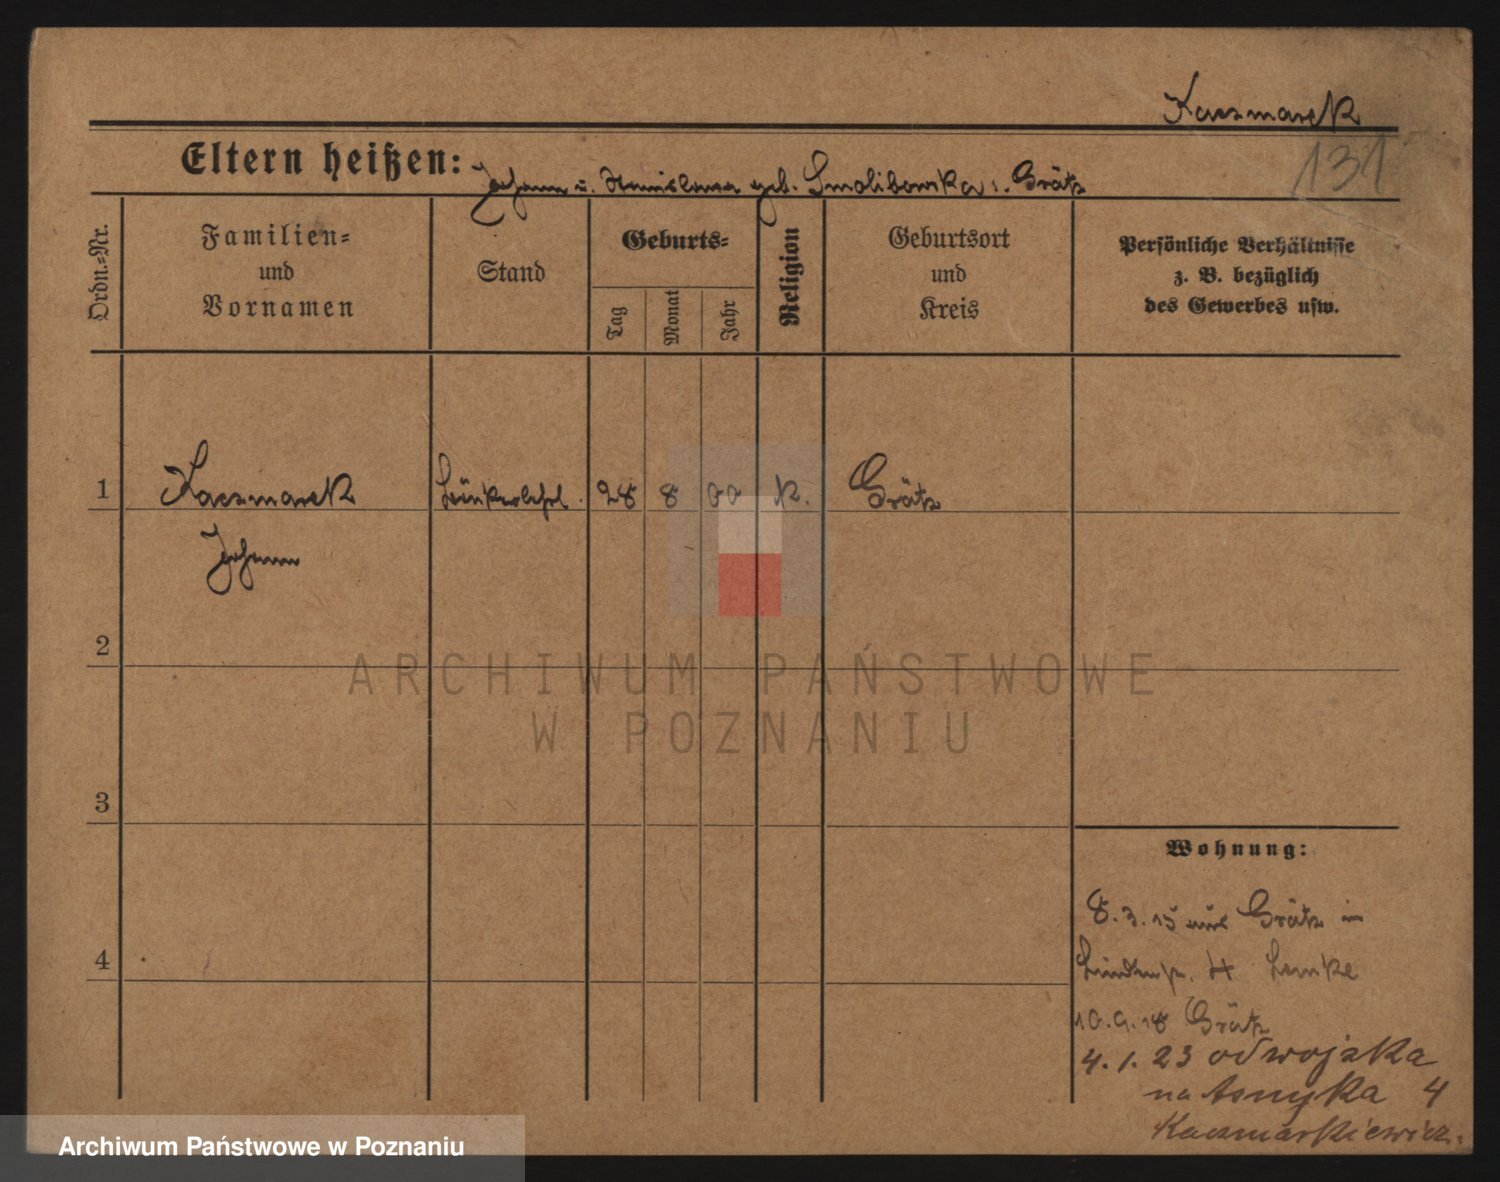 Kaczmarek
131
Eltern heißen: Johann u. Stanislawa geb. Smolibowska i. Grätz
Ordn.=Nr.
Familien=
und
Vornamen
Stand
Geburts=
Tag
Monat
Jahr
Religion
Geburtsort
und
Kreis
Persönliche Verhältnisse
z. B. bezüglich
des Gewerbes usw.
1 Kaczmarek 28 8 00 K. Grätz
Johann
2
ARCHIWUM PAŃSTWOWE
W POZNANIU
3
Wohnung:
8.3.15 aus Grätz in
4 Lindenstr. 4 Lemke
10.9.18 Grätz
4.1.23 od wojska
na Asnyka 4
Kaczmarkiewicz.
Archiwum Państwowe w Poznaniu